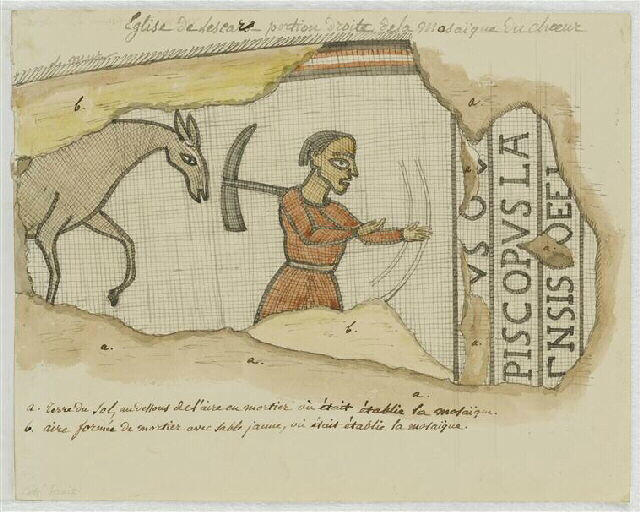 Eglise de Lescar - portion droite de la mosaïque du chœur
b.
a.
VS O V
PISCOPVS LA
ENSIS
a.
b.
a.
a.
a.
a. Terre du sol, au dessous de l'aire en mortier où était établie la mosaïque.
b. aire formée de mortier avec sable jaune, où était établie la mosaïque.